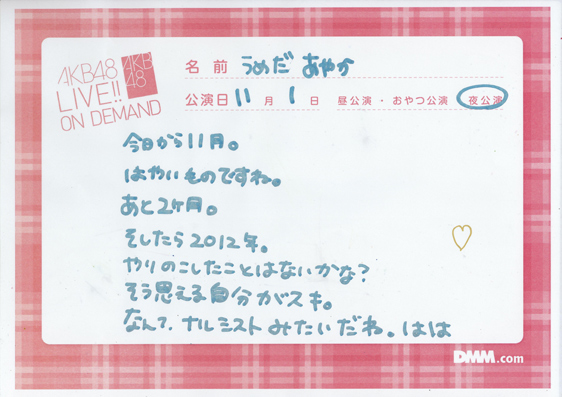 AKB48
LIVE!!
ON DEMAND
AKB
48
名前 うめだ あやか
公演日 11月 1日 昼公演・おやつ公演 夜公演
今日から11月。
はやいものですね。
あと2ヶ月。
そしたら2012年。
やりのこしたことはないかな?
そう思える自分がスキ。
なんて、ナルシストみたいだね。はは
DMM.com